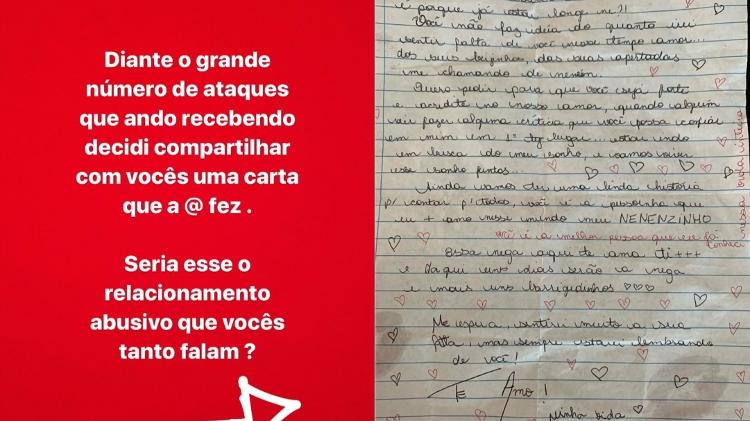 Diante o grande
número de ataques
que ando recebendo
decidi compartilhar
com vocês uma carta
que a @ fez .
Seria esse o
relacionamento
abusivo que vocês
tanto falam ?
é porque já estar longe né?!
Você não faz ideia do quanto irei
sentir falta de você nesse tempo amor...
dos seus beijinhos, das suas apertadas
me chamando de neném.
Quero pedir para que você seja forte
e acredite no nosso amor, quando alguém
vai fazer alguma crítica que você possa confiar
em mim em 1º lugar... estar indo
em busca do meu sonho, e vamos viver
esse sonho juntos...
Ainda vamos ter uma linda história
p/ contar p/ todos, você é a pessoinha que
eu + amo nesse mundo meu NENENZINHO
você é a melhor pessoa que eu já
conheci nessa vida
Essa nega aqui te ama +++
e daqui uns dias serão a nega
e mais uns barrigudinhos
Me espera, sentirei muito a sua
falta, mas sempre estarei lembrando
de você!
Te Amo!
minha vida